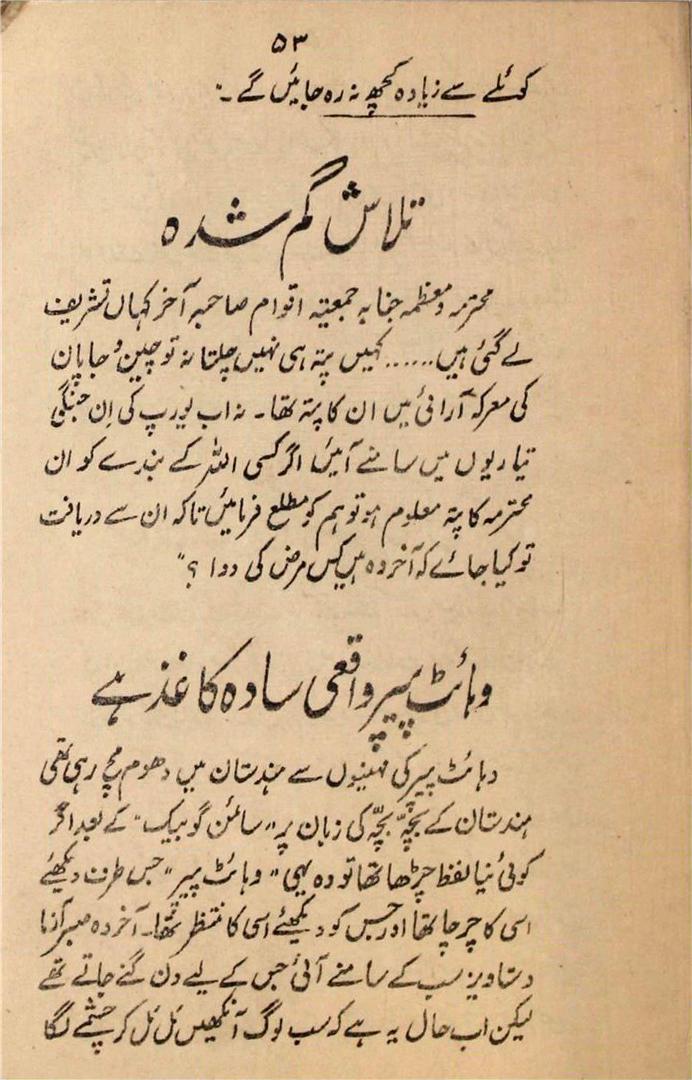 ۵۳
کوئلے سے زیادہ کچھ نہ رہ جائیں گے۔"
تلاش گم شدہ
محترمہ و معظمہ جنابہ جمعیتہ اقوام صاحبہ آخر کہاں تشریف
لے گئی ہیں...... کہیں پتہ ہی نہیں چلتا نہ تو چین و جاپان
کی معرکہ آرائی میں ان کا پتہ تھا۔ نہ اب یورپ کی اِن جنگی
تیاریوں میں سامنے آئیں اگر کسی اللہ کے بندے کو ان
محترمہ کا پتہ معلوم ہو تو ہم کو مطلع فرمائیں تاکہ ان سے دریافت
تو کیا جائے کہ آخر وہ ہیں کس مرض کی دوا ؟"
وہائٹ پیپر واقعی سادہ کاغذ ہے
وہائٹ پیپر کی مہینوں سے ہندستان میں دھوم مچ رہی تھی
ہندستان کے بچّہ بچّہ کی زبان پر "سائمن گو بیک" کے بعد اگر
کوئی نیا لفظ چڑھا تھا تو وہ یہی "وہائٹ پیپر" جس طرف دیکھئے
اسی کا چرچا تھا اور جس کو دیکھئے اسی کا منتظر تھا۔ آخر وہ صبر آزما
دستاویز سب کے سامنے آئی جس کے لیے دن گنے جاتے تھے
لیکن اب حال یہ ہے کہ سب لوگ آنکھیں مَل مَل کر چشمے لگا